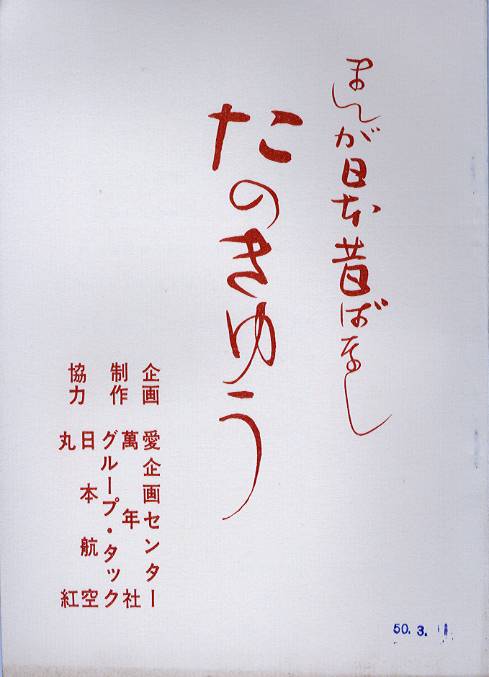 まんが日本昔ばなし
たのきゆう
企画 愛企画センター
制作 萬年社
グループ・タック
協力 日本航空
丸紅
50. 3.